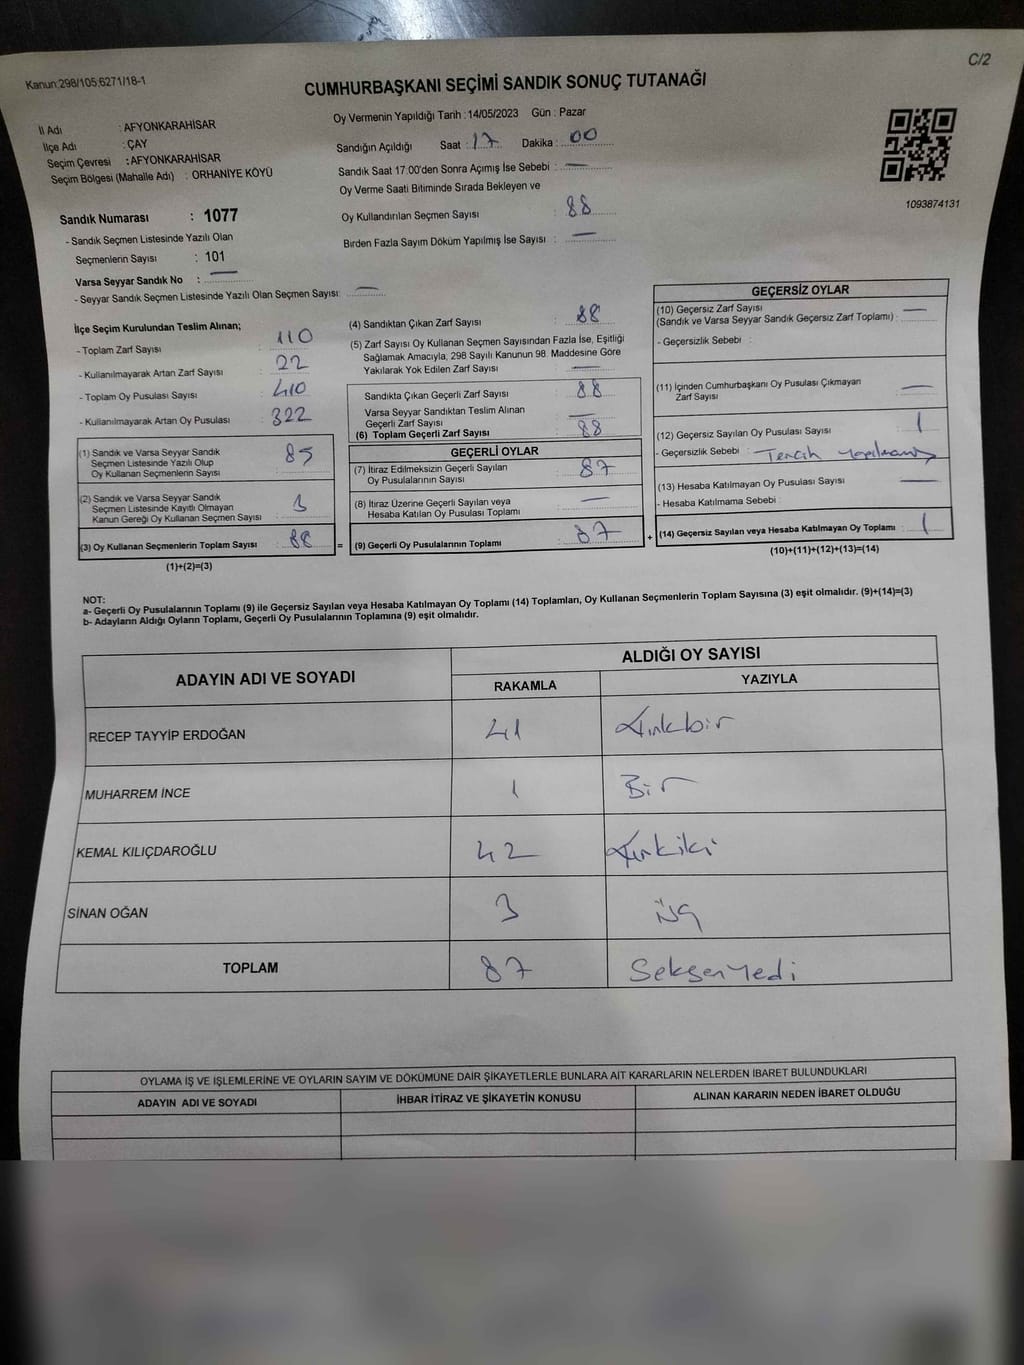 C/2
Kanun:298/105;6271/18-1
CUMHURBAŞKANI SEÇİMİ SANDIK SONUÇ TUTANAĞI
İl Adı : AFYONKARAHİSAR
İlçe Adı : ÇAY
Seçim Çevresi : AFYONKARAHİSAR
Seçim Bölgesi (Mahalle Adı) : ORHANİYE KÖYÜ
Oy Vermenin Yapıldığı Tarih : 14/05/2023 Gün : Pazar
Sandığın Açıldığı Saat : 17 Dakika : 00
Sandık Saat 17:00'den Sonra Açımış İse Sebebi : —
Oy Verme Saati Bitiminde Sırada Bekleyen ve
Oy Kullandırılan Seçmen Sayısı : 88
Birden Fazla Sayım Döküm Yapılmış İse Sayısı : —
1093874131
Sandık Numarası : 1077
- Sandık Seçmen Listesinde Yazılı Olan
Seçmenlerin Sayısı : 101
Varsa Seyyar Sandık No : —
- Seyyar Sandık Seçmen Listesinde Yazılı Olan Seçmen Sayısı: —
İlçe Seçim Kurulundan Teslim Alınan;
- Toplam Zarf Sayısı : 110
- Kullanılmayarak Artan Zarf Sayısı : 22
- Toplam Oy Pusulası Sayısı : 410
- Kullanılmayarak Artan Oy Pusulası : 322
(1) Sandık ve Varsa Seyyar Sandık
Seçmen Listesinde Yazılı Olup
Oy Kullanan Seçmenlerin Sayısı : 85
(2) Sandık ve Varsa Seyyar Sandık
Seçmen Listesinde Kayıtlı Olmayan
Kanun Gereği Oy Kullanan Seçmen Sayısı : 3
(3) Oy Kullanan Seçmenlerin Toplam Sayısı : 88
(1)+(2)=(3)
=
(4) Sandıktan Çıkan Zarf Sayısı : 88
(5) Zarf Sayısı Oy Kullanan Seçmen Sayısından Fazla İse, Eşitliği
Sağlamak Amacıyla, 298 Sayılı Kanunun 98. Maddesine Göre
Yakılarak Yok Edilen Zarf Sayısı : —
Sandıkta Çıkan Geçerli Zarf Sayısı : 88
Varsa Seyyar Sandıktan Teslim Alınan
Geçerli Zarf Sayısı : —
(6) Toplam Geçerli Zarf Sayısı : 88
GEÇERLİ OYLAR
(7) İtiraz Edilmeksizin Geçerli Sayılan
Oy Pusulalarının Sayısı : 87
(8) İtiraz Üzerine Geçerli Sayılan veya
Hesaba Katılan Oy Pusulası Toplamı : —
(9) Geçerli Oy Pusulalarının Toplamı : 87
+
GEÇERSİZ OYLAR
(10) Geçersiz Zarf Sayısı
(Sandık ve Varsa Seyyar Sandık Geçersiz Zarf Toplamı) : —
- Geçersizlik Sebebi :
(11) İçinden Cumhurbaşkanı Oy Pusulası Çıkmayan
Zarf Sayısı : —
(12) Geçersiz Sayılan Oy Pusulası Sayısı : 1
- Geçersizlik Sebebi : Tercih
(13) Hesaba Katılmayan Oy Pusulası Sayısı : —
- Hesaba Katılmama Sebebi :
(14) Geçersiz Sayılan veya Hesaba Katılmayan Oy Toplamı : 1
(10)+(11)+(12)+(13)=(14)
NOT:
a- Geçerli Oy Pusulalarının Toplamı (9) ile Geçersiz Sayılan veya Hesaba Katılmayan Oy Toplamı (14) Toplamları, Oy Kullanan Seçmenlerin Toplam Sayısına (3) eşit olmalıdır. (9)+(14)=(3)
b- Adayların Aldığı Oyların Toplamı, Geçerli Oy Pusulalarının Toplamına (9) eşit olmalıdır.
ADAYIN ADI VE SOYADI
ALDIĞI OY SAYISI
RAKAMLA YAZIYLA
RECEP TAYYİP ERDOĞAN 41 Kırkbir
MUHARREM İNCE 1 Bir
KEMAL KILIÇDAROĞLU 42 Kırkiki
SİNAN OĞAN 3 üç
TOPLAM 87 Seksenyedi
OYLAMA İŞ VE İŞLEMLERİNE VE OYLARIN SAYIM VE DÖKÜMÜNE DAİR ŞİKAYETLERLE BUNLARA AİT KARARLARIN NELERDEN İBARET BULUNDUKLARI
ADAYIN ADI VE SOYADI İHBAR İTİRAZ VE ŞİKAYETİN KONUSU ALINAN KARARIN NEDEN İBARET OLDUĞU